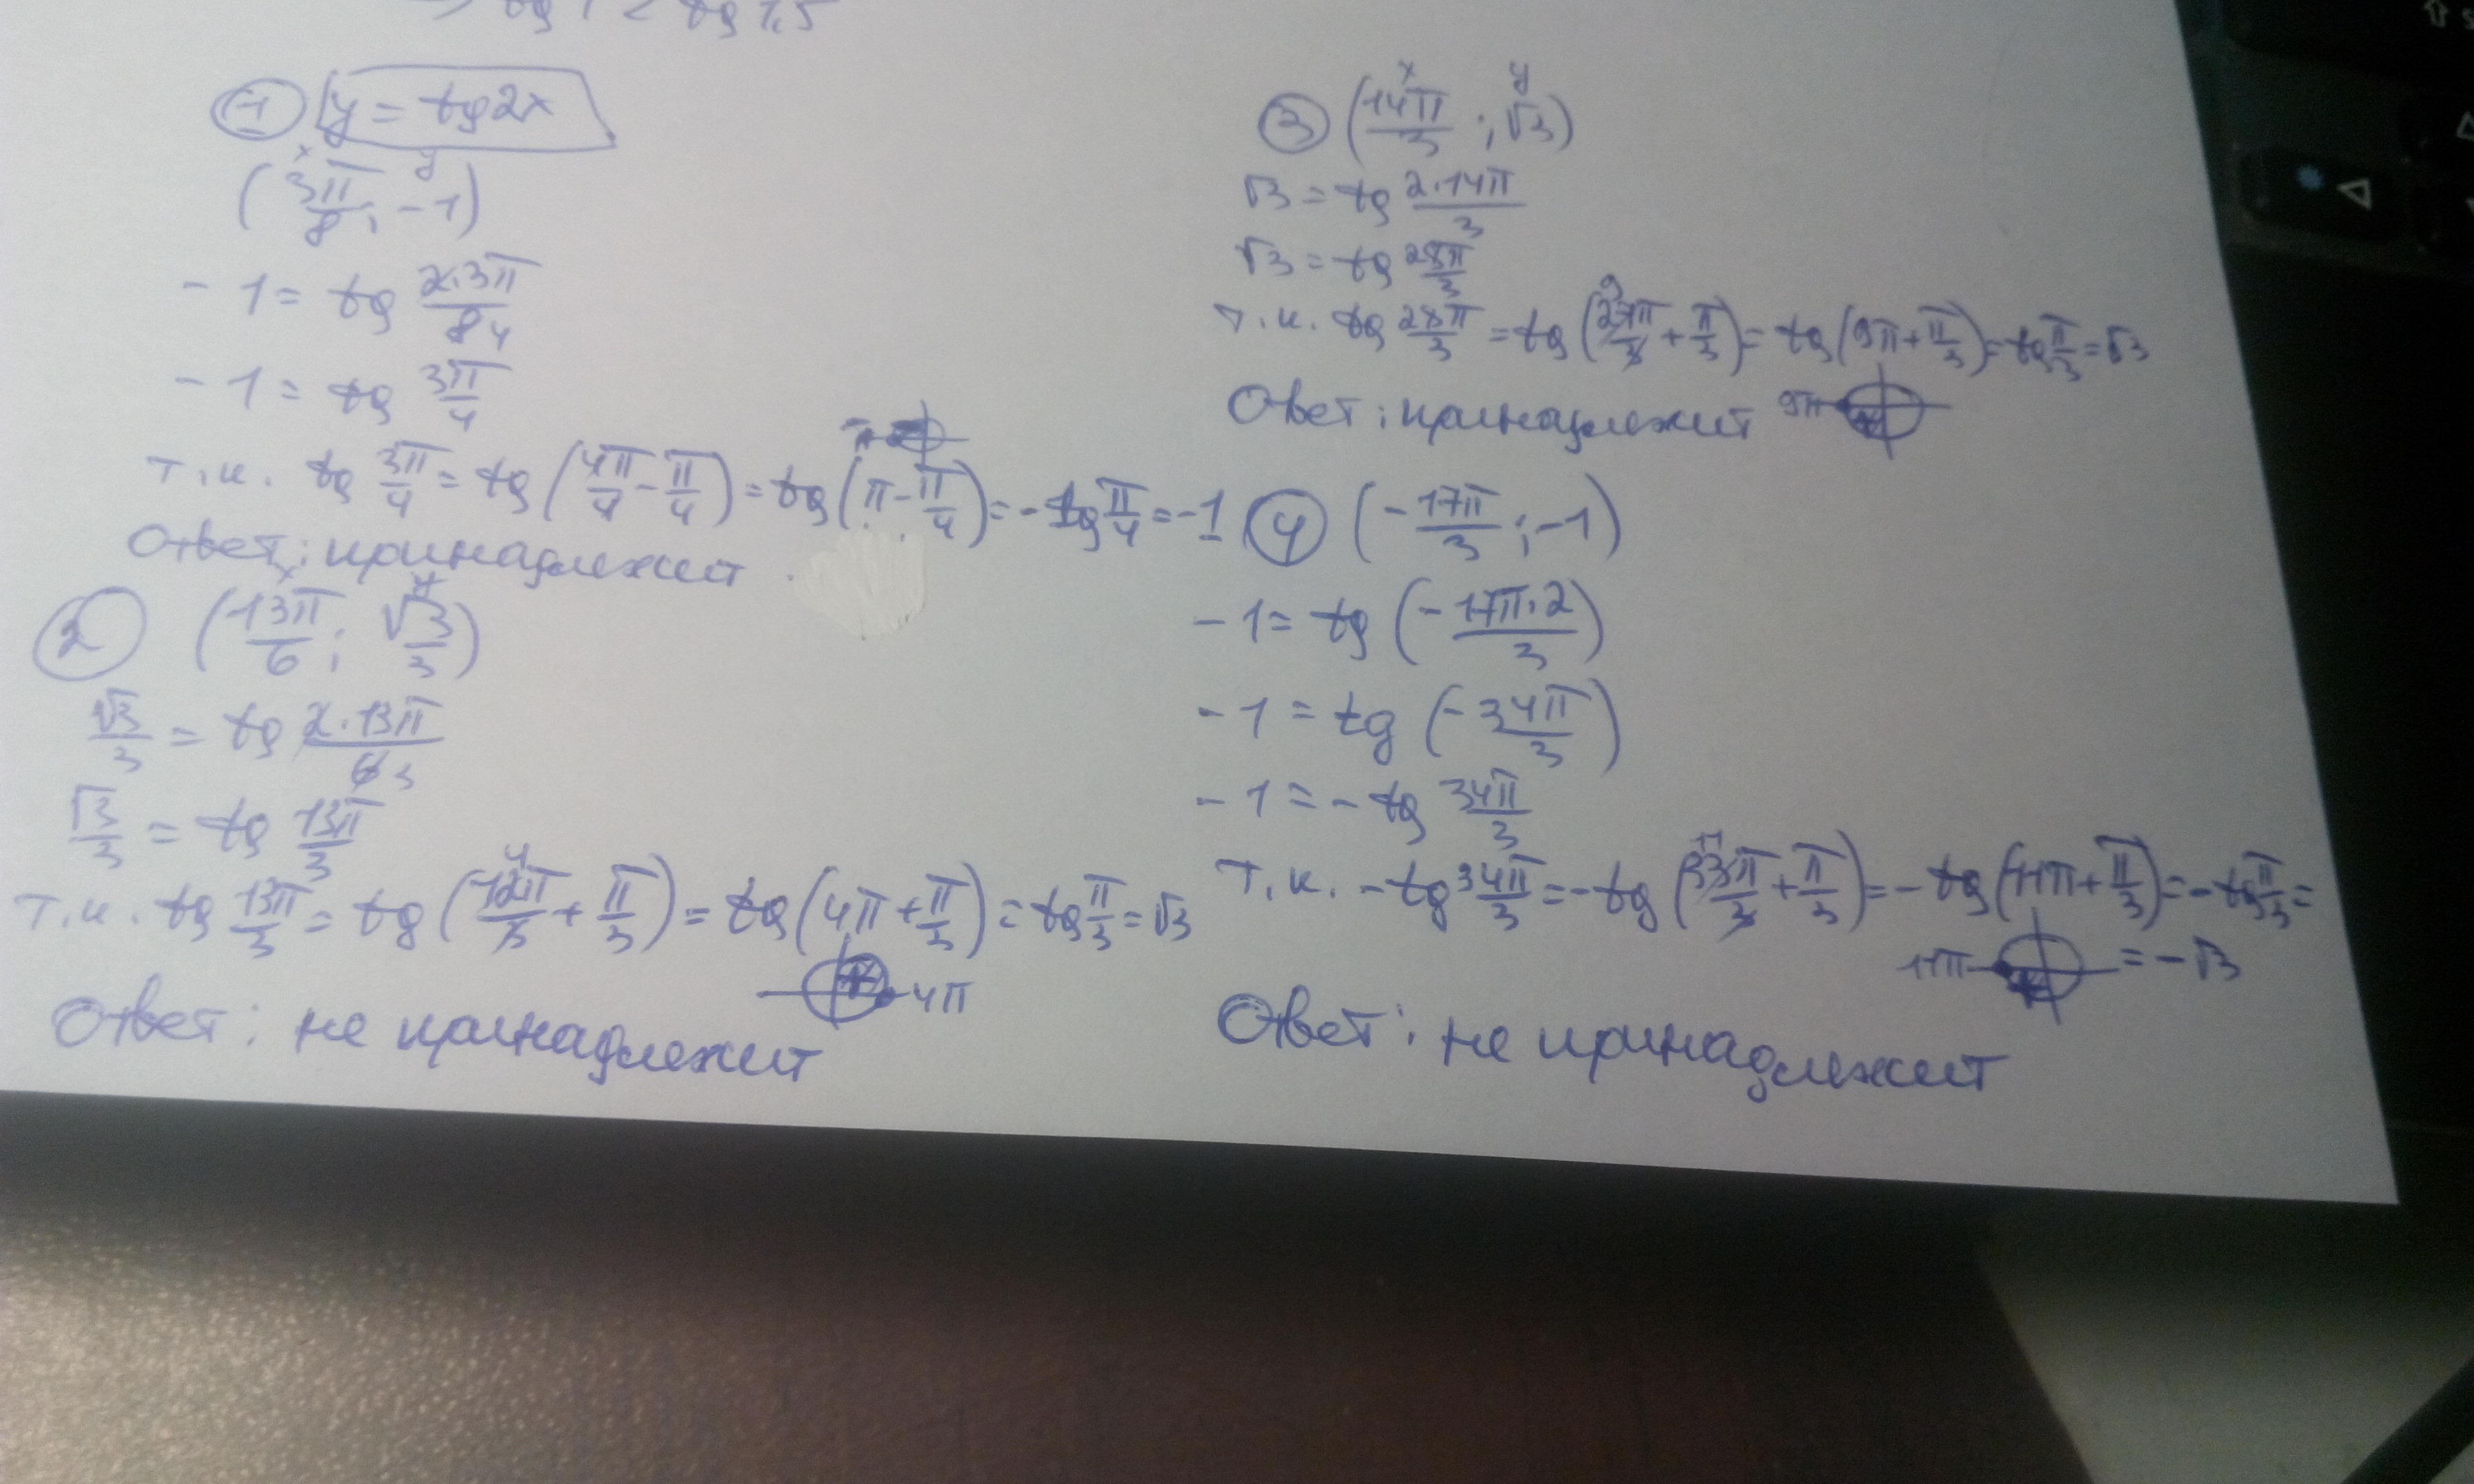 => tg 1 < tg 1,5
① y = tg2x
x y
(3π/8; -1)
-1 = tg 2·3π/8 4
-1 = tg 3π/4
т.к. tg 3π/4 = tg (4π/4 - π/4) = tg (π - π/4) = -tg π/4 = -1
Ответ: принадлежит
x y
② (13π/6; √3/3)
√3/3 = tg 2·13π/6 3
√3/3 = tg 13π/3
4
т.к. tg 13π/3 = tg (12π/3 + π/3) = tg (4π + π/3) = tg π/3 = √3
4π
Ответ: не принадлежит
x y
③ (14π/3; √3)
√3 = tg 2·14π/3
√3 = tg 28π/3
9
т.к. tg 28π/3 = tg (27π/3 + π/3) = tg (9π + π/3) = tg π/3 = √3
Ответ: принадлежит 9π
④ (-17π/3; -1)
-1 = tg (-17π·2/3)
-1 = tg (-34π/3)
-1 = -tg 34π/3
11
т.к. -tg 34π/3 = -tg (33π/3 + π/3) = -tg (11π + π/3) = -tg π/3 =
11π = -√3
Ответ: не принадлежит